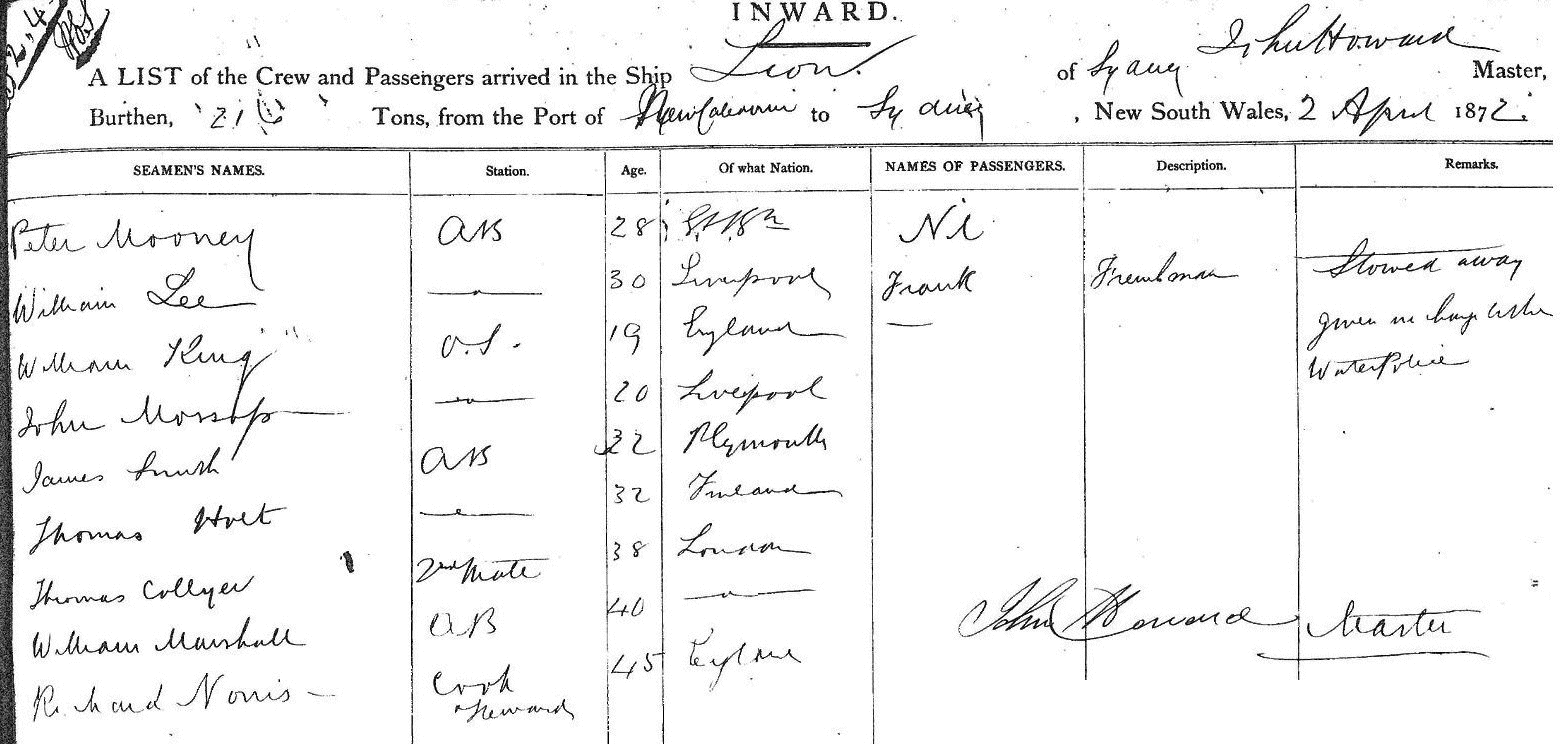 INWARD.
A LIST of the Crew and Passengers arrived in the Ship Lion. of Sydney John Howard Master,
Burthen, 216 Tons, from the Port of New Caledonia to Sydney, New South Wales, 2 April 1872.
SEAMEN'S NAMES. Station. Age. Of what Nation. NAMES OF PASSENGERS. Description. Remarks.
Peter Mooney AB 28 Nil
William Lee —"— 30 Liverpool Frank Frenchman Stowed away
William King O.S. 19 England — given in charge
John Mossop —"— 20 Liverpool Water Police
James Smith AB 32 Plymouth
Thomas Holt —"— 32 Finland
Thomas Collyer 2nd Mate 38 London
William Marshall AB 40 —"—
Richard Norris — Cook 45 England
Steward
John Howard Master